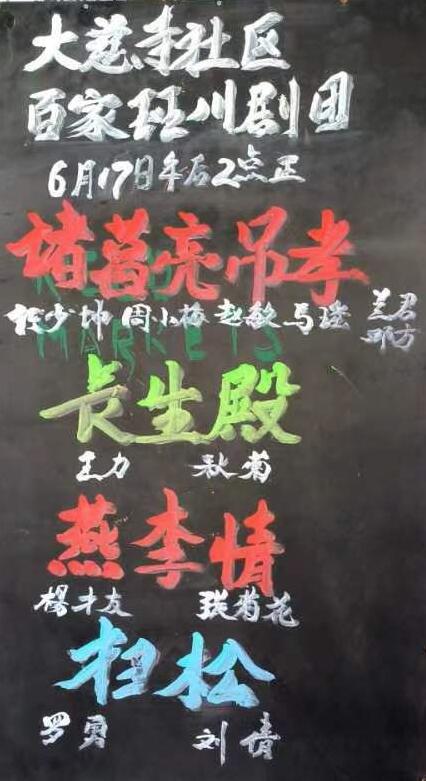 大慈寺社区
百家班川剧团
6月17日午后2点正
诸葛亮吊孝
少坤 周小梅 赵敏 马瑞 兰君 邓方
MARKETS
长生殿
王力 秋菊
燕李情
楊才友 张菊花
扫松
罗勇 刘倩